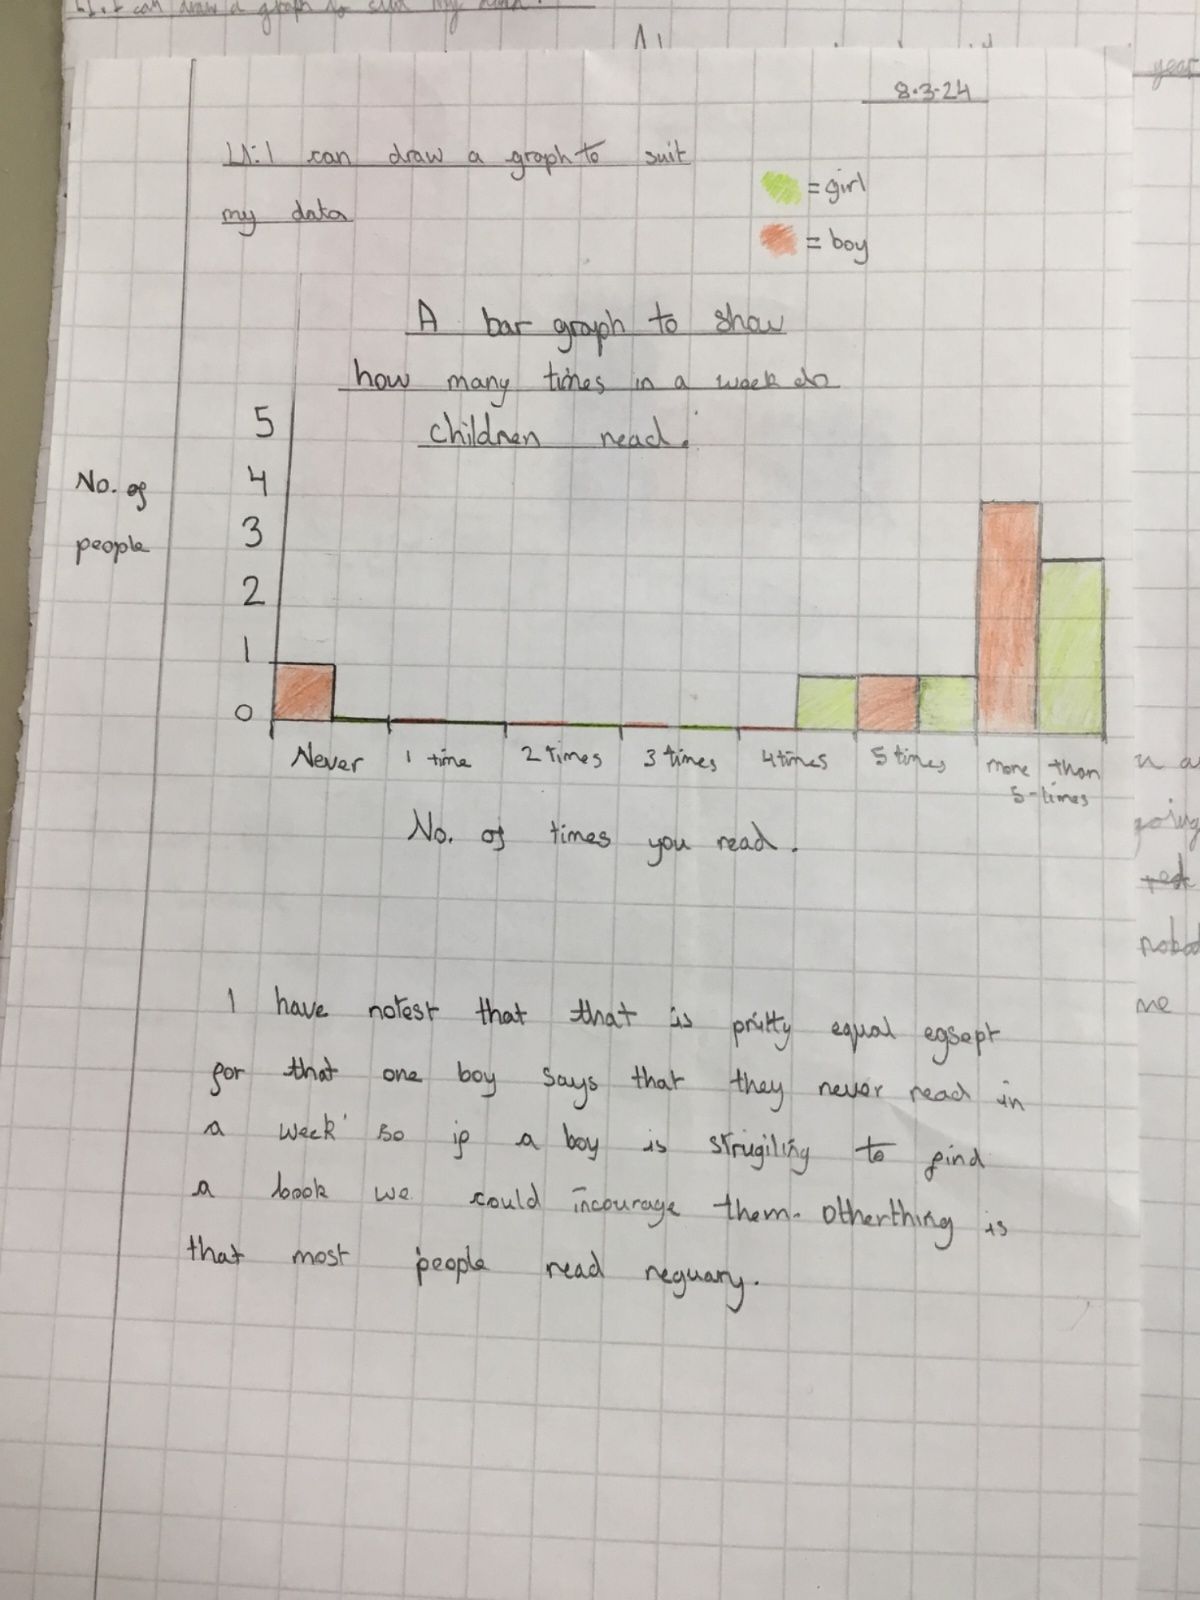 L1: I can draw a graph to suit my data.
year
8.3.24
LI: I can draw a graph to suit
my data
= girl
= boy
A bar graph to show
how many times in a week do
children read.
5
4
3
2
1
0
No. of
people
Never 1 time 2 times 3 times 4 times 5 times more than
5-times
No. of times you read.
going
red
me
I have notest that that is pritty equal egsept
for that one boy says that they never read in
a week so if a boy is strugiling to find
a book we could incourage them. Otherthing is
that most people read reguary.